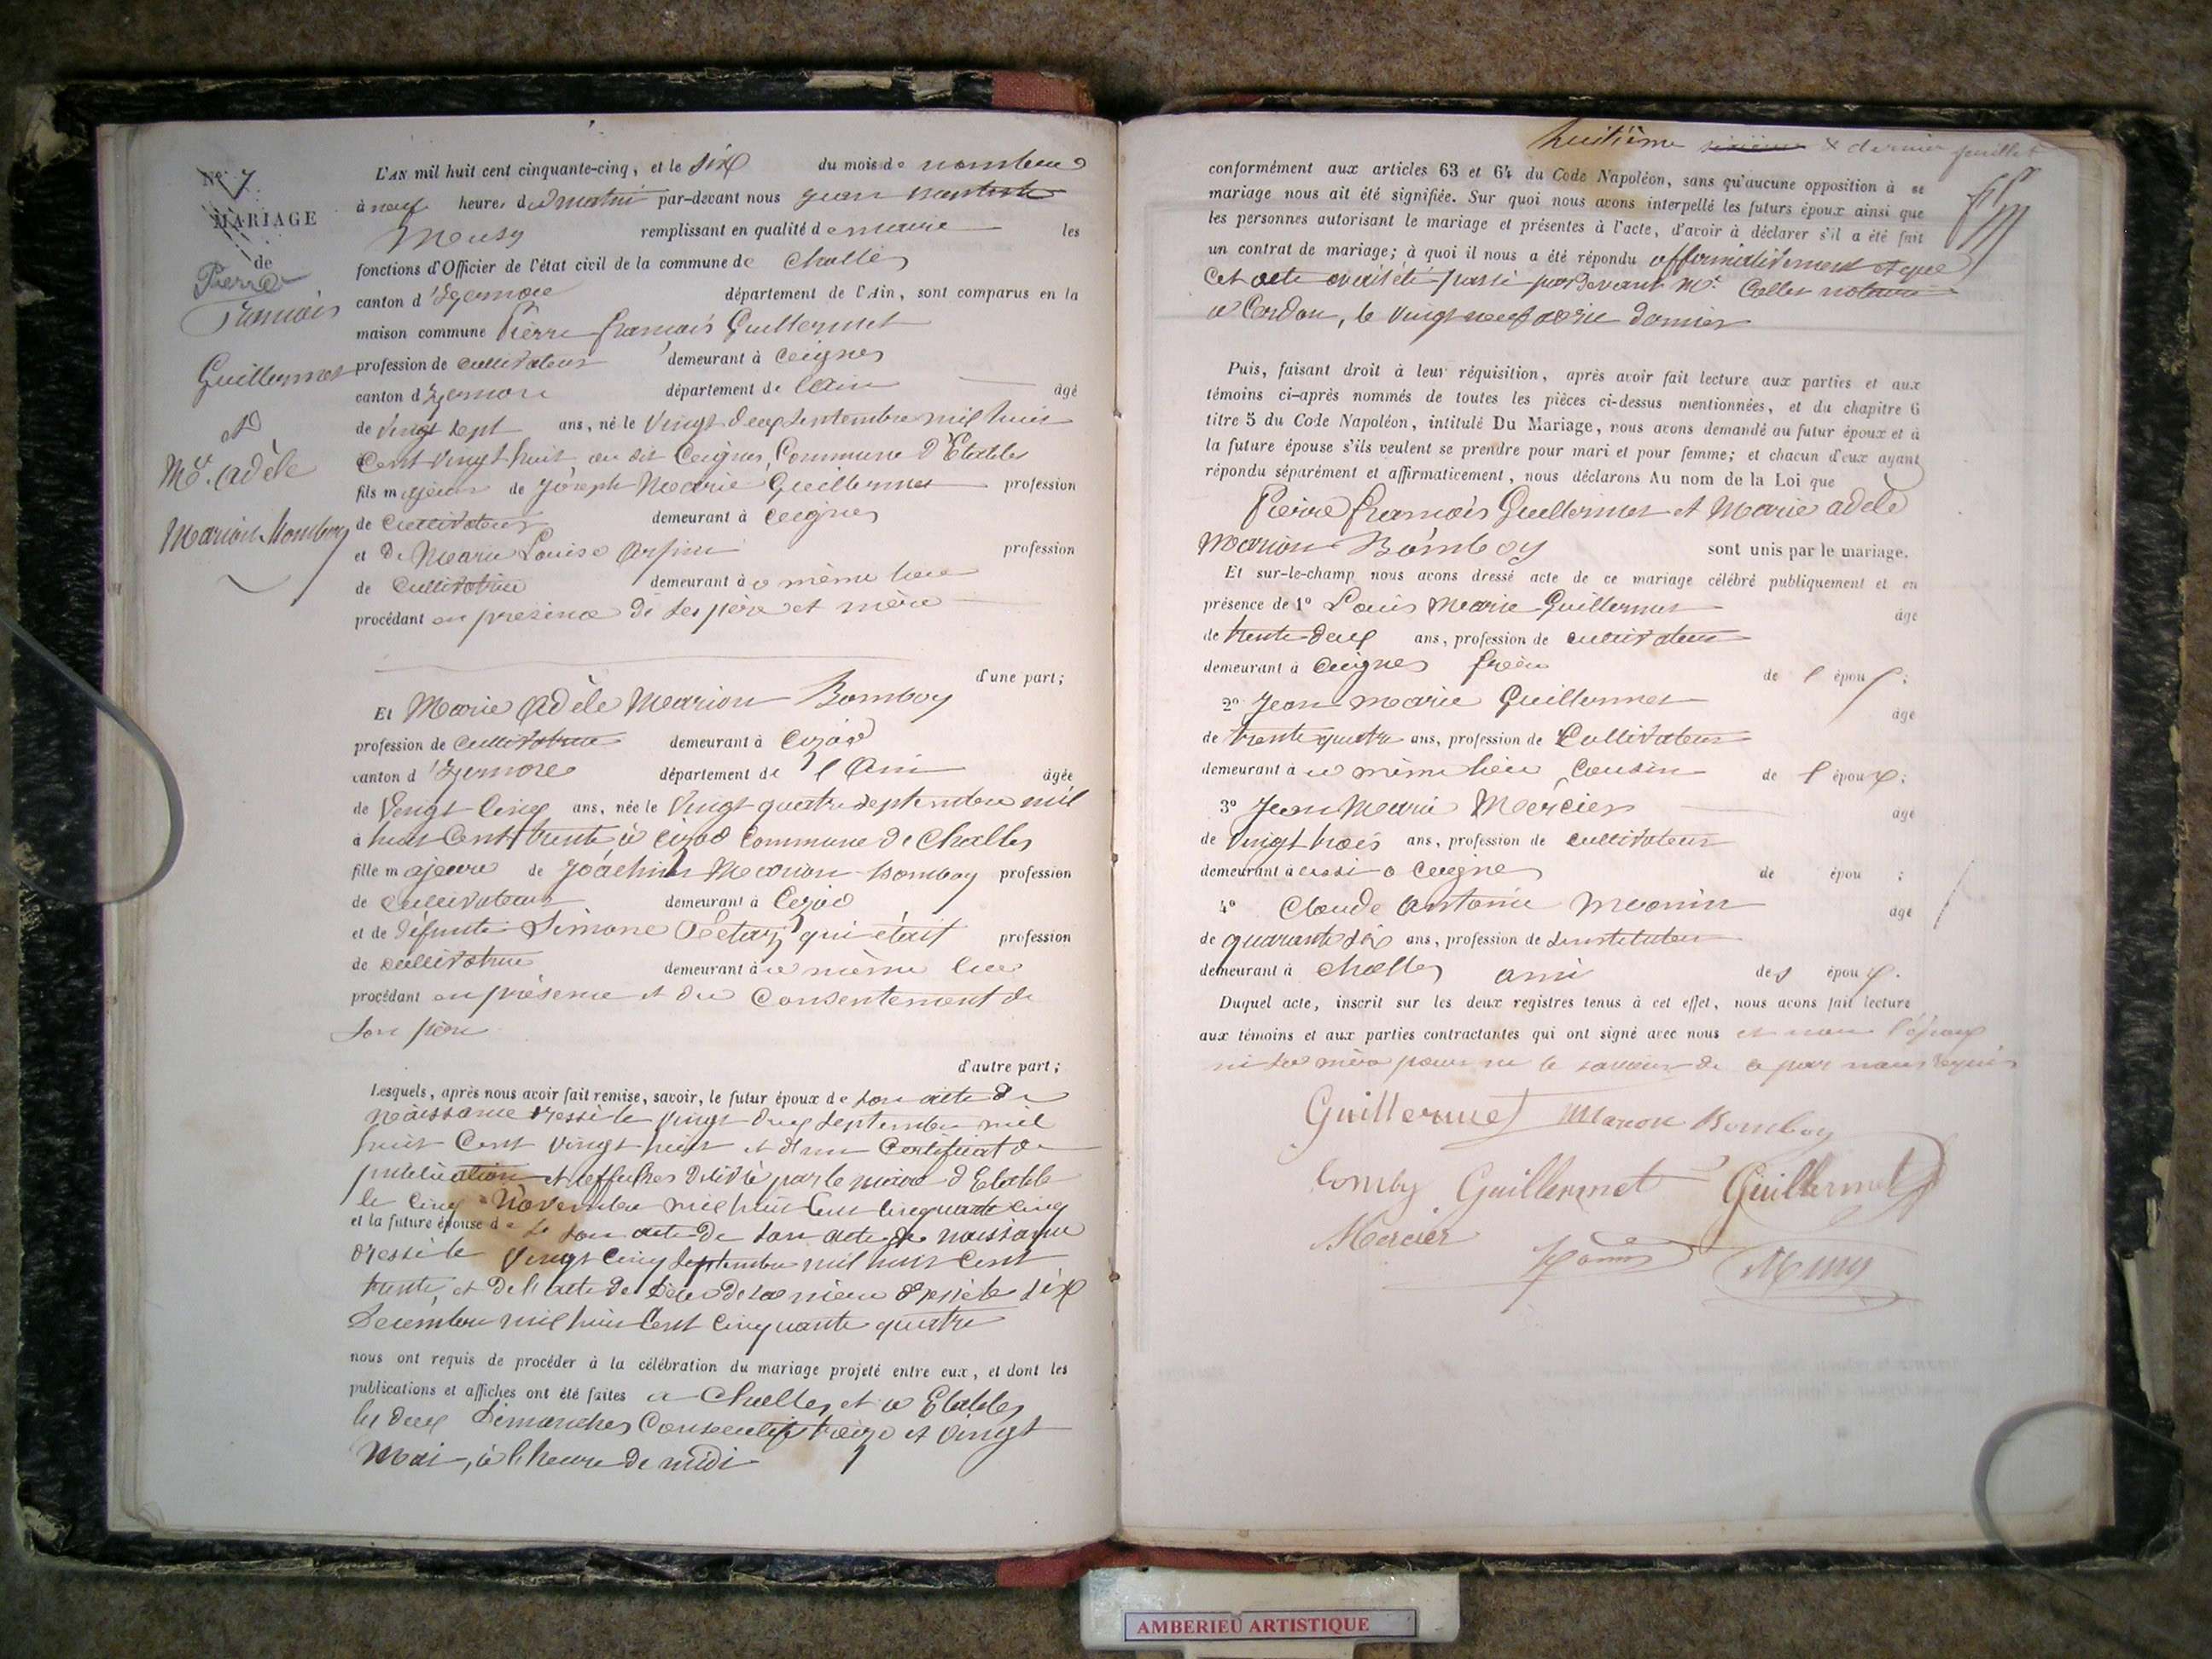 No. 7
MARIAGE
de
Pierre
François
Guillermet
et
Me. Adèle
Marion Bomboy
L'AN mil huit cent cinquante-cinq, et le six du mois de novembre
à neuf heures du matin par-devant nous Jean
Meusy remplissant en qualité de maire les
fonctions d'Officier de l'état civil de la commune de Challes
canton d'Izernore département de l'Ain, sont comparus en la
maison commune Pierre françois Guillermet
profession de cultivateur demeurant à Ceignes
canton d'Izernore département de l'Ain âgé
de Vingt Sept ans, né le Vingt deux Septembre mil huit
Cent Vingt huit au dit Ceignes, Commune d'Etables
fils majeur de Joseph Marie Guillermet profession
de Cultivateur demeurant à Ceignes
et de Marie Louise profession
de Cultivatrice demeurant à ce même lieu
procédant en présence de ses père et mère
d'une part;
Et Marie Adèle Marion Bomboy
profession de Cultivatrice demeurant à Cizod
canton d'Izernore département de l'Ain âgée
de Vingt Cinq ans, née le Vingt quatre septembre mil
huit Cent trente à Cizod Commune de Challes
fille majeure de Joachim Marion Bomboy profession
de Cultivateur demeurant à Cizod
et de défunte Simone qui était profession
de cultivatrice demeurant à ce même lieu
procédant en présence et du Consentement de
son père
d'autre part;
Lesquels, après nous avoir fait remise, savoir, le futur époux de son acte de
naissance dressé le vingt deux Septembre mil
huit Cent Vingt huit et d'un Certificat de
publication et d'affiches délivré par le maire d'Etable
le cinq Novembre mil huit Cent Cinquante cinq
et la future épouse de son acte de son acte de naissance
dressé le Vingt Cinq Septembre mil huit Cent
trente, et de l'acte de décès de sa mère dressé le six
Décembre mil huit Cent Cinquante quatre
nous ont requis de procéder à la célébration du mariage projeté entre eux, et dont les
publications et affiches ont été faites à Challes et à Etables
les deux Dimanches Consecutifs treize et vingt
Mai, à l'heure de midi
huitième sixième & dernier feuillet
conformément aux articles 63 et 64 du Code Napoléon, sans qu'aucune opposition à ce
mariage nous ait été signifiée. Sur quoi nous avons interpellé les futurs époux ainsi que
les personnes autorisant le mariage et présentes à l'acte, d'avoir à déclarer s'il a été fait
un contrat de mariage; à quoi il nous a été répondu affirmativement et que
Cet acte avait été passé par devant Me. Collet notaire
à Cerdon, le Vingt neuf avril dernier
Puis, faisant droit à leur réquisition, après avoir fait lecture aux parties et aux
témoins ci-après nommés de toutes les pièces ci-dessus mentionnées, et du chapitre 6
titre 5 du Code Napoléon, intitulé Du Mariage, nous avons demandé au futur époux et à
la future épouse s'ils veulent se prendre pour mari et pour femme; et chacun d'eux ayant
répondu séparément et affirmativement, nous déclarons Au nom de la Loi que
Pierre françois Guillermet et Marie adèle
Marion Bomboy sont unis par le mariage.
Et sur-le-champ nous avons dressé acte de ce mariage célébré publiquement et en
présence de 1o Louis Marie Guillermet âgé
de trente-deux ans, profession de cultivateur
demeurant à Ceignes frère de l'époux;
2o Jean marie Guillermet âgé
de trente quatre ans, profession de Cultivateur
demeurant à ce même lieu Cousin de l'époux;
3o Jean Marie Mercier âgé
de Vingt trois ans, profession de cultivateur
demeurant à aussi à Ceignes de épou ;
4o Claude Antoine Monin âgé
de quarante six ans, profession de Instituteur
demeurant à Challes ami des époux.
Duquel acte, inscrit sur les deux registres tenus à cet effet, nous avons fait lecture
aux témoins et aux parties contractantes qui ont signé avec nous et non l'épouse
ni sa mère pour ne le savoir de ce par nous requis
Guillermet Marion Bomboy
Guillermet Guillermet
Mercier Monin Meusy
AMBERIEU ARTISTIQUE